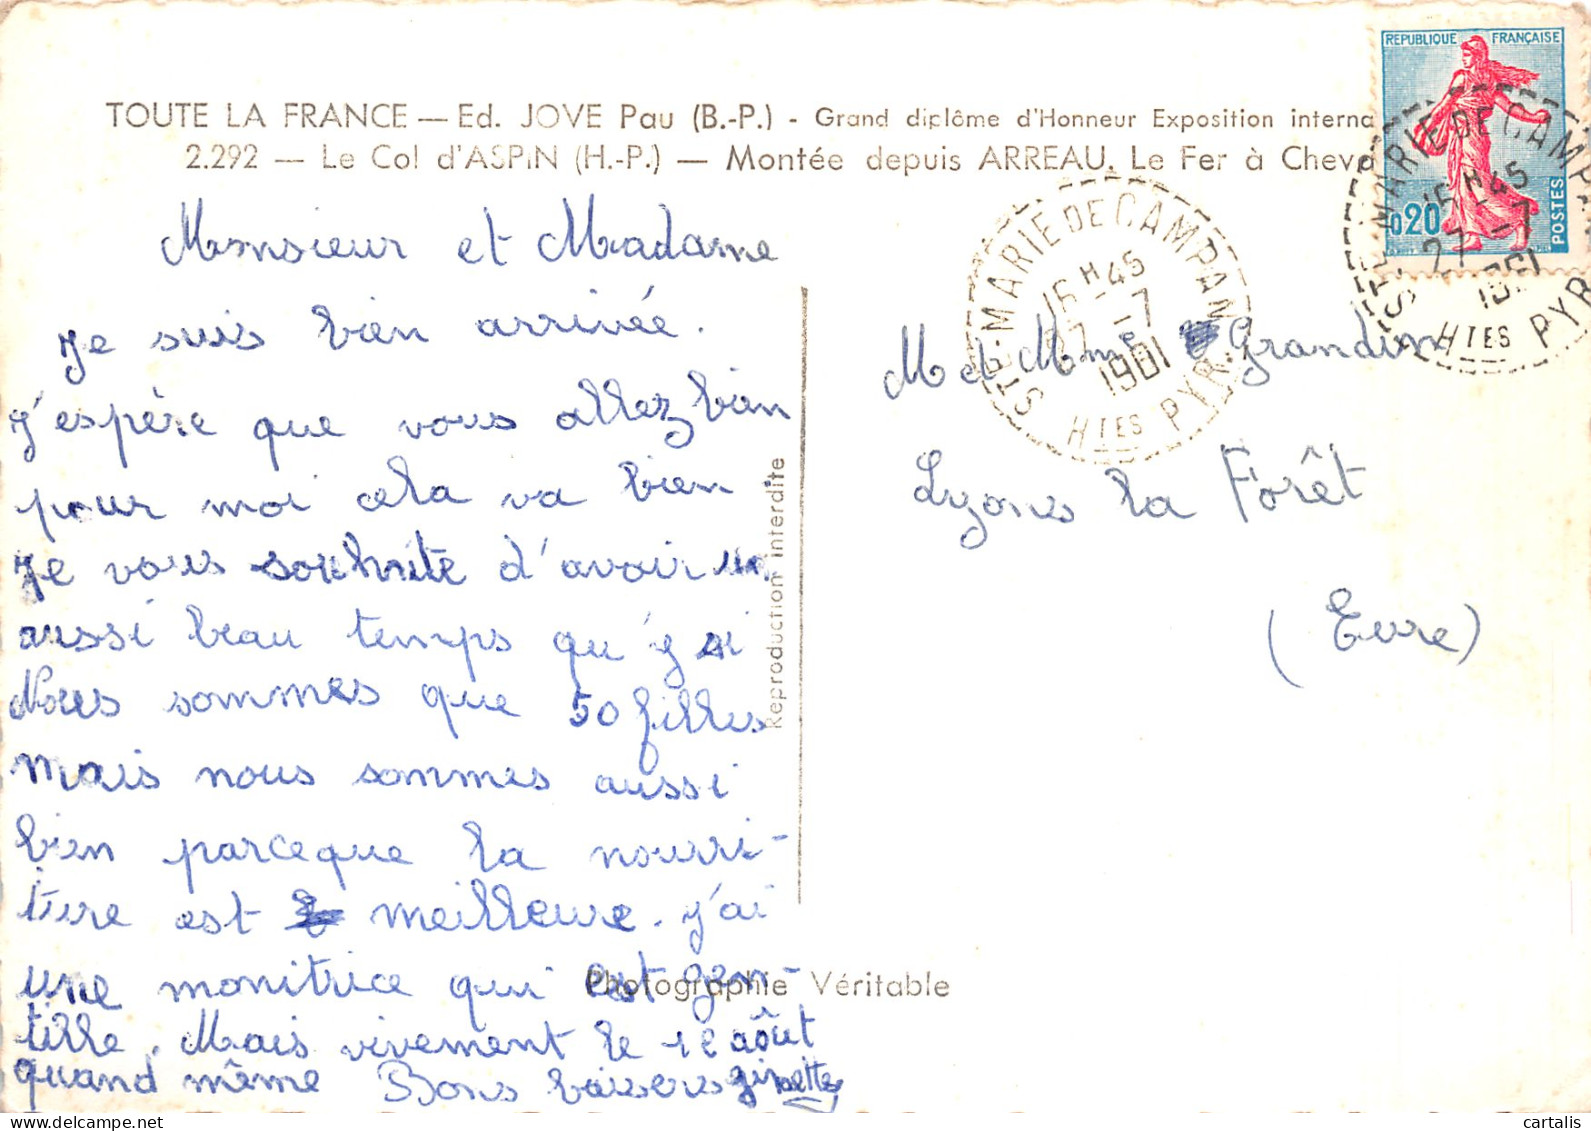 TOUTE LA FRANCE — Ed. JOVE Pau (B.-P.) - Grand diplôme d'Honneur Exposition interna
2.292 — Le Col d'ASPIN (H.-P.) — Montée depuis ARREAU. Le Fer à Cheva
REPUBLIQUE FRANÇAISE
0,20
POSTES
STE-MARIE DE CAMPAN
15H45
27-7
1961
HTES PYR.
STE-MARIE DE CAMPAN
15H45
27-7
1961
HTES PYR.
Monsieur et Madame
Je suis bien arrivée.
J'espère que vous allez bien
pour moi cela va bien
Je vous souhaite d'avoir un
aussi beau temps qu'j'ai
Nous sommes que 50 filles
mais nous sommes aussi
bien parceque la nourri-
ture est meilleure. j'ai
une monitrice qui est gen-
tille. Mais vivement le août
quand même Bons baisers ginette
M et Mme Grandin
Lyons la Forêt
(Eure)
Reproduction interdite
Photographie Véritable
cartalis